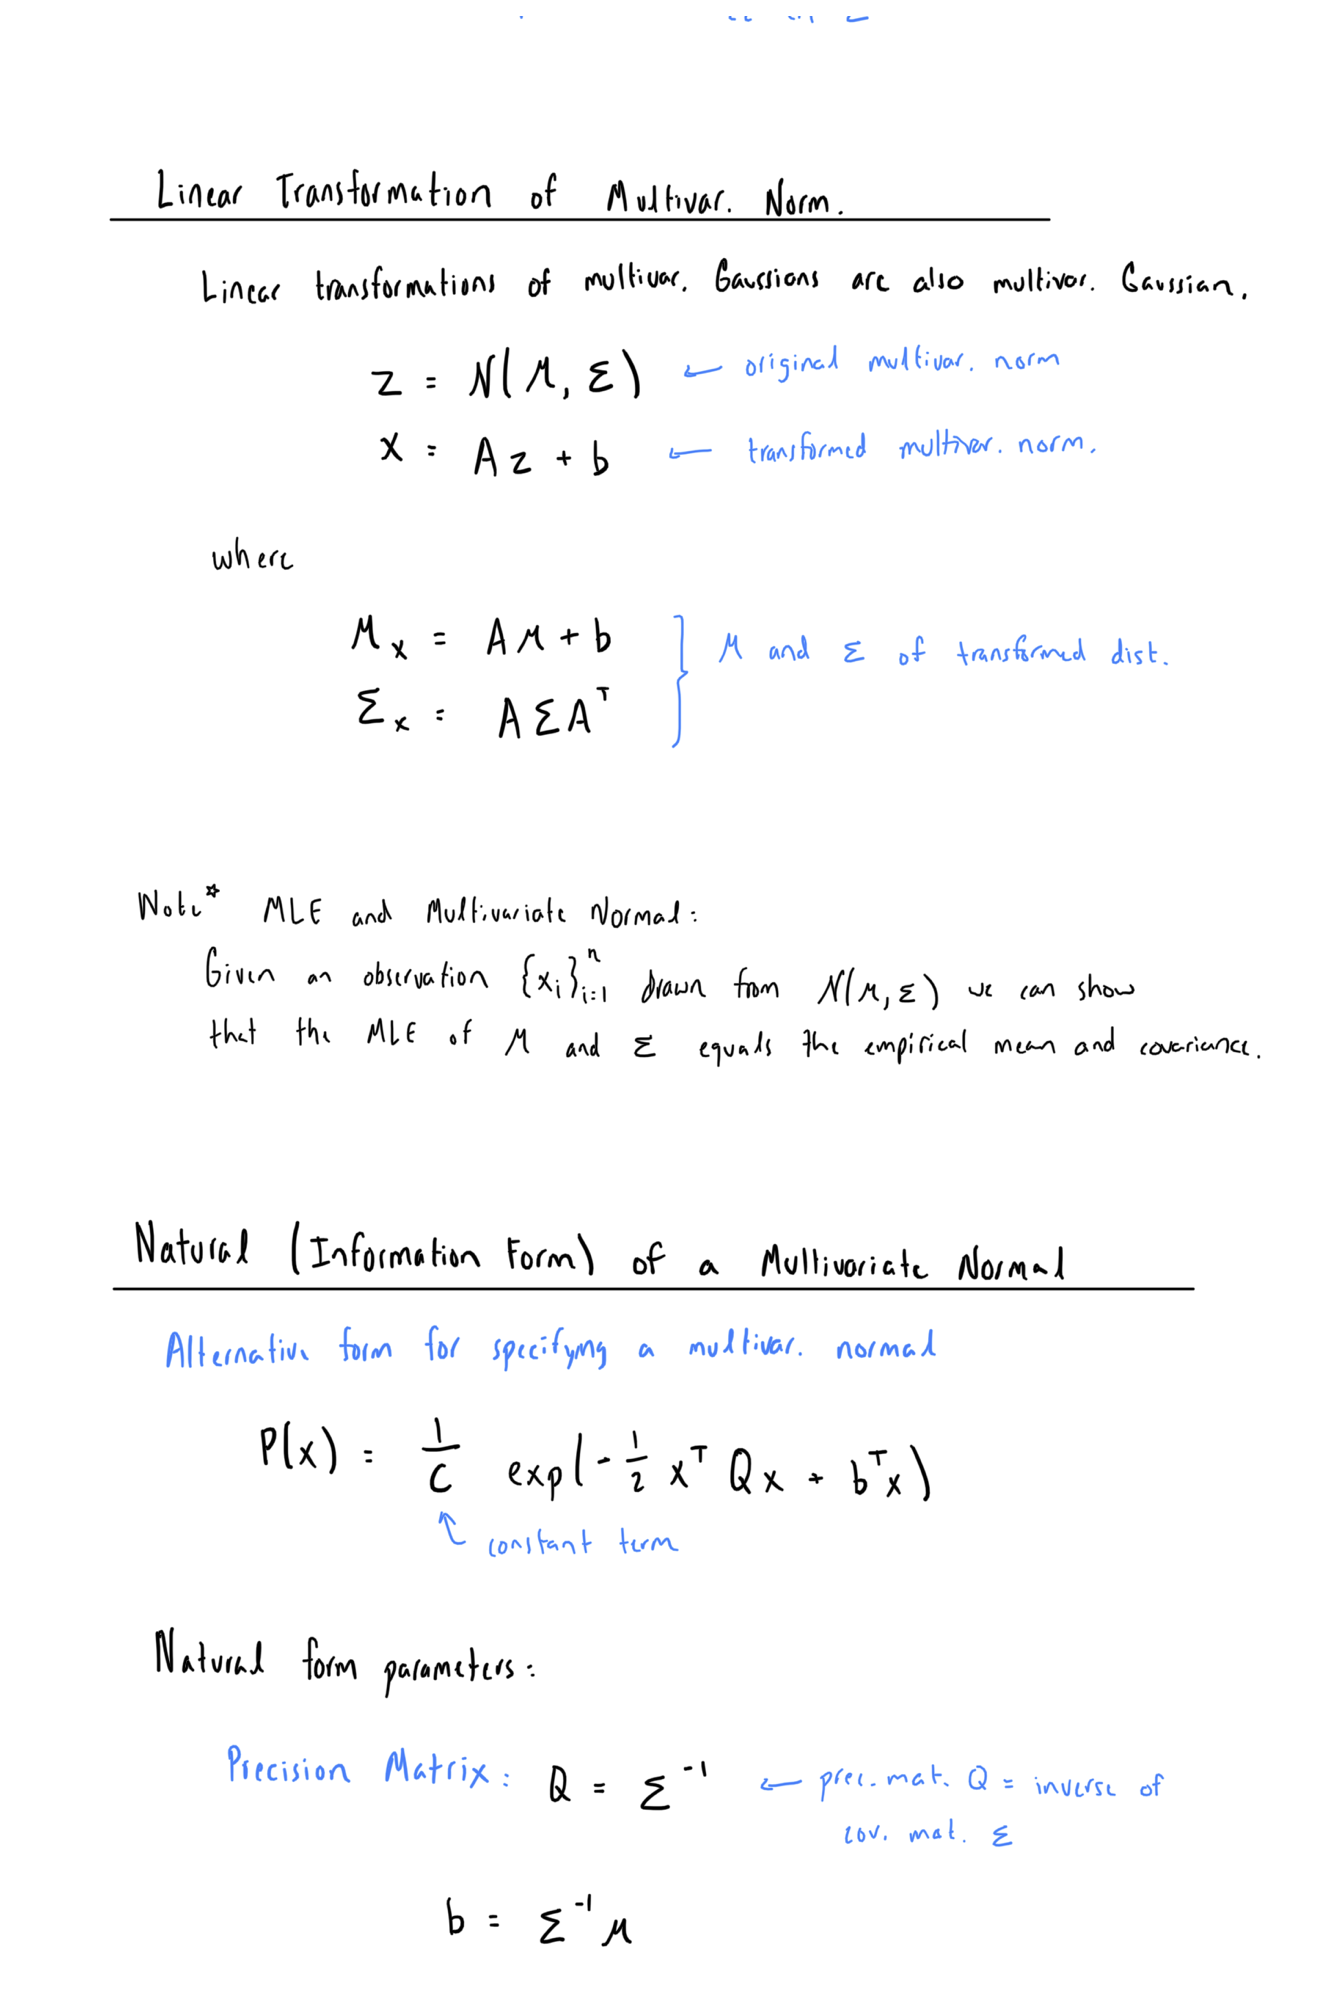 Linear Transformation of Multivar. Norm.
Linear transformations of multivar. Gaussians are also multivar. Gaussian.
z = N(μ, Σ) ← original multivar. norm
x = Az + b ← transformed multivar. norm.
where
μₓ = Aμ + b
Σₓ = AΣAᵀ
} μ and Σ of transformed dist.
Note☆ MLE and Multivariate Normal:
Given an observation {xᵢ}ⁿᵢ₌₁ drawn from N(μ, Σ) we can show
that the MLE of μ and Σ equals the empirical mean and covariance.
Natural (Information Form) of a Multivariate Normal
Alternative form for specifying a multivar. normal
P(x) = 1/C exp(-1/2 xᵀQx + bᵀx)
↑ constant term
Natural form parameters:
Precision Matrix: Q = Σ⁻¹ ← prec. mat. Q = inverse of
cov. mat. Σ
b = Σ⁻¹μ